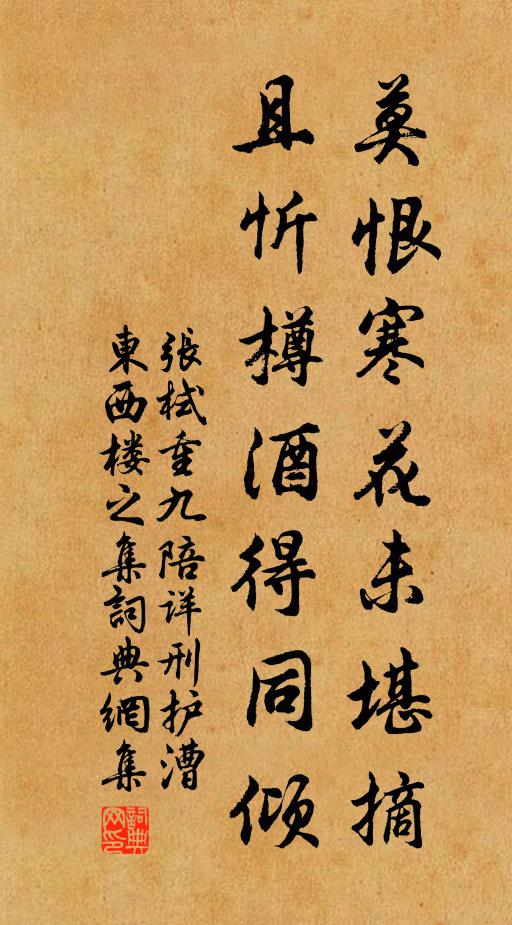 莫恨寒花未堪摘
且忻樽酒得同倾
張栻重九陪详刑护漕
東西楼之集詞典網集
詞典网印